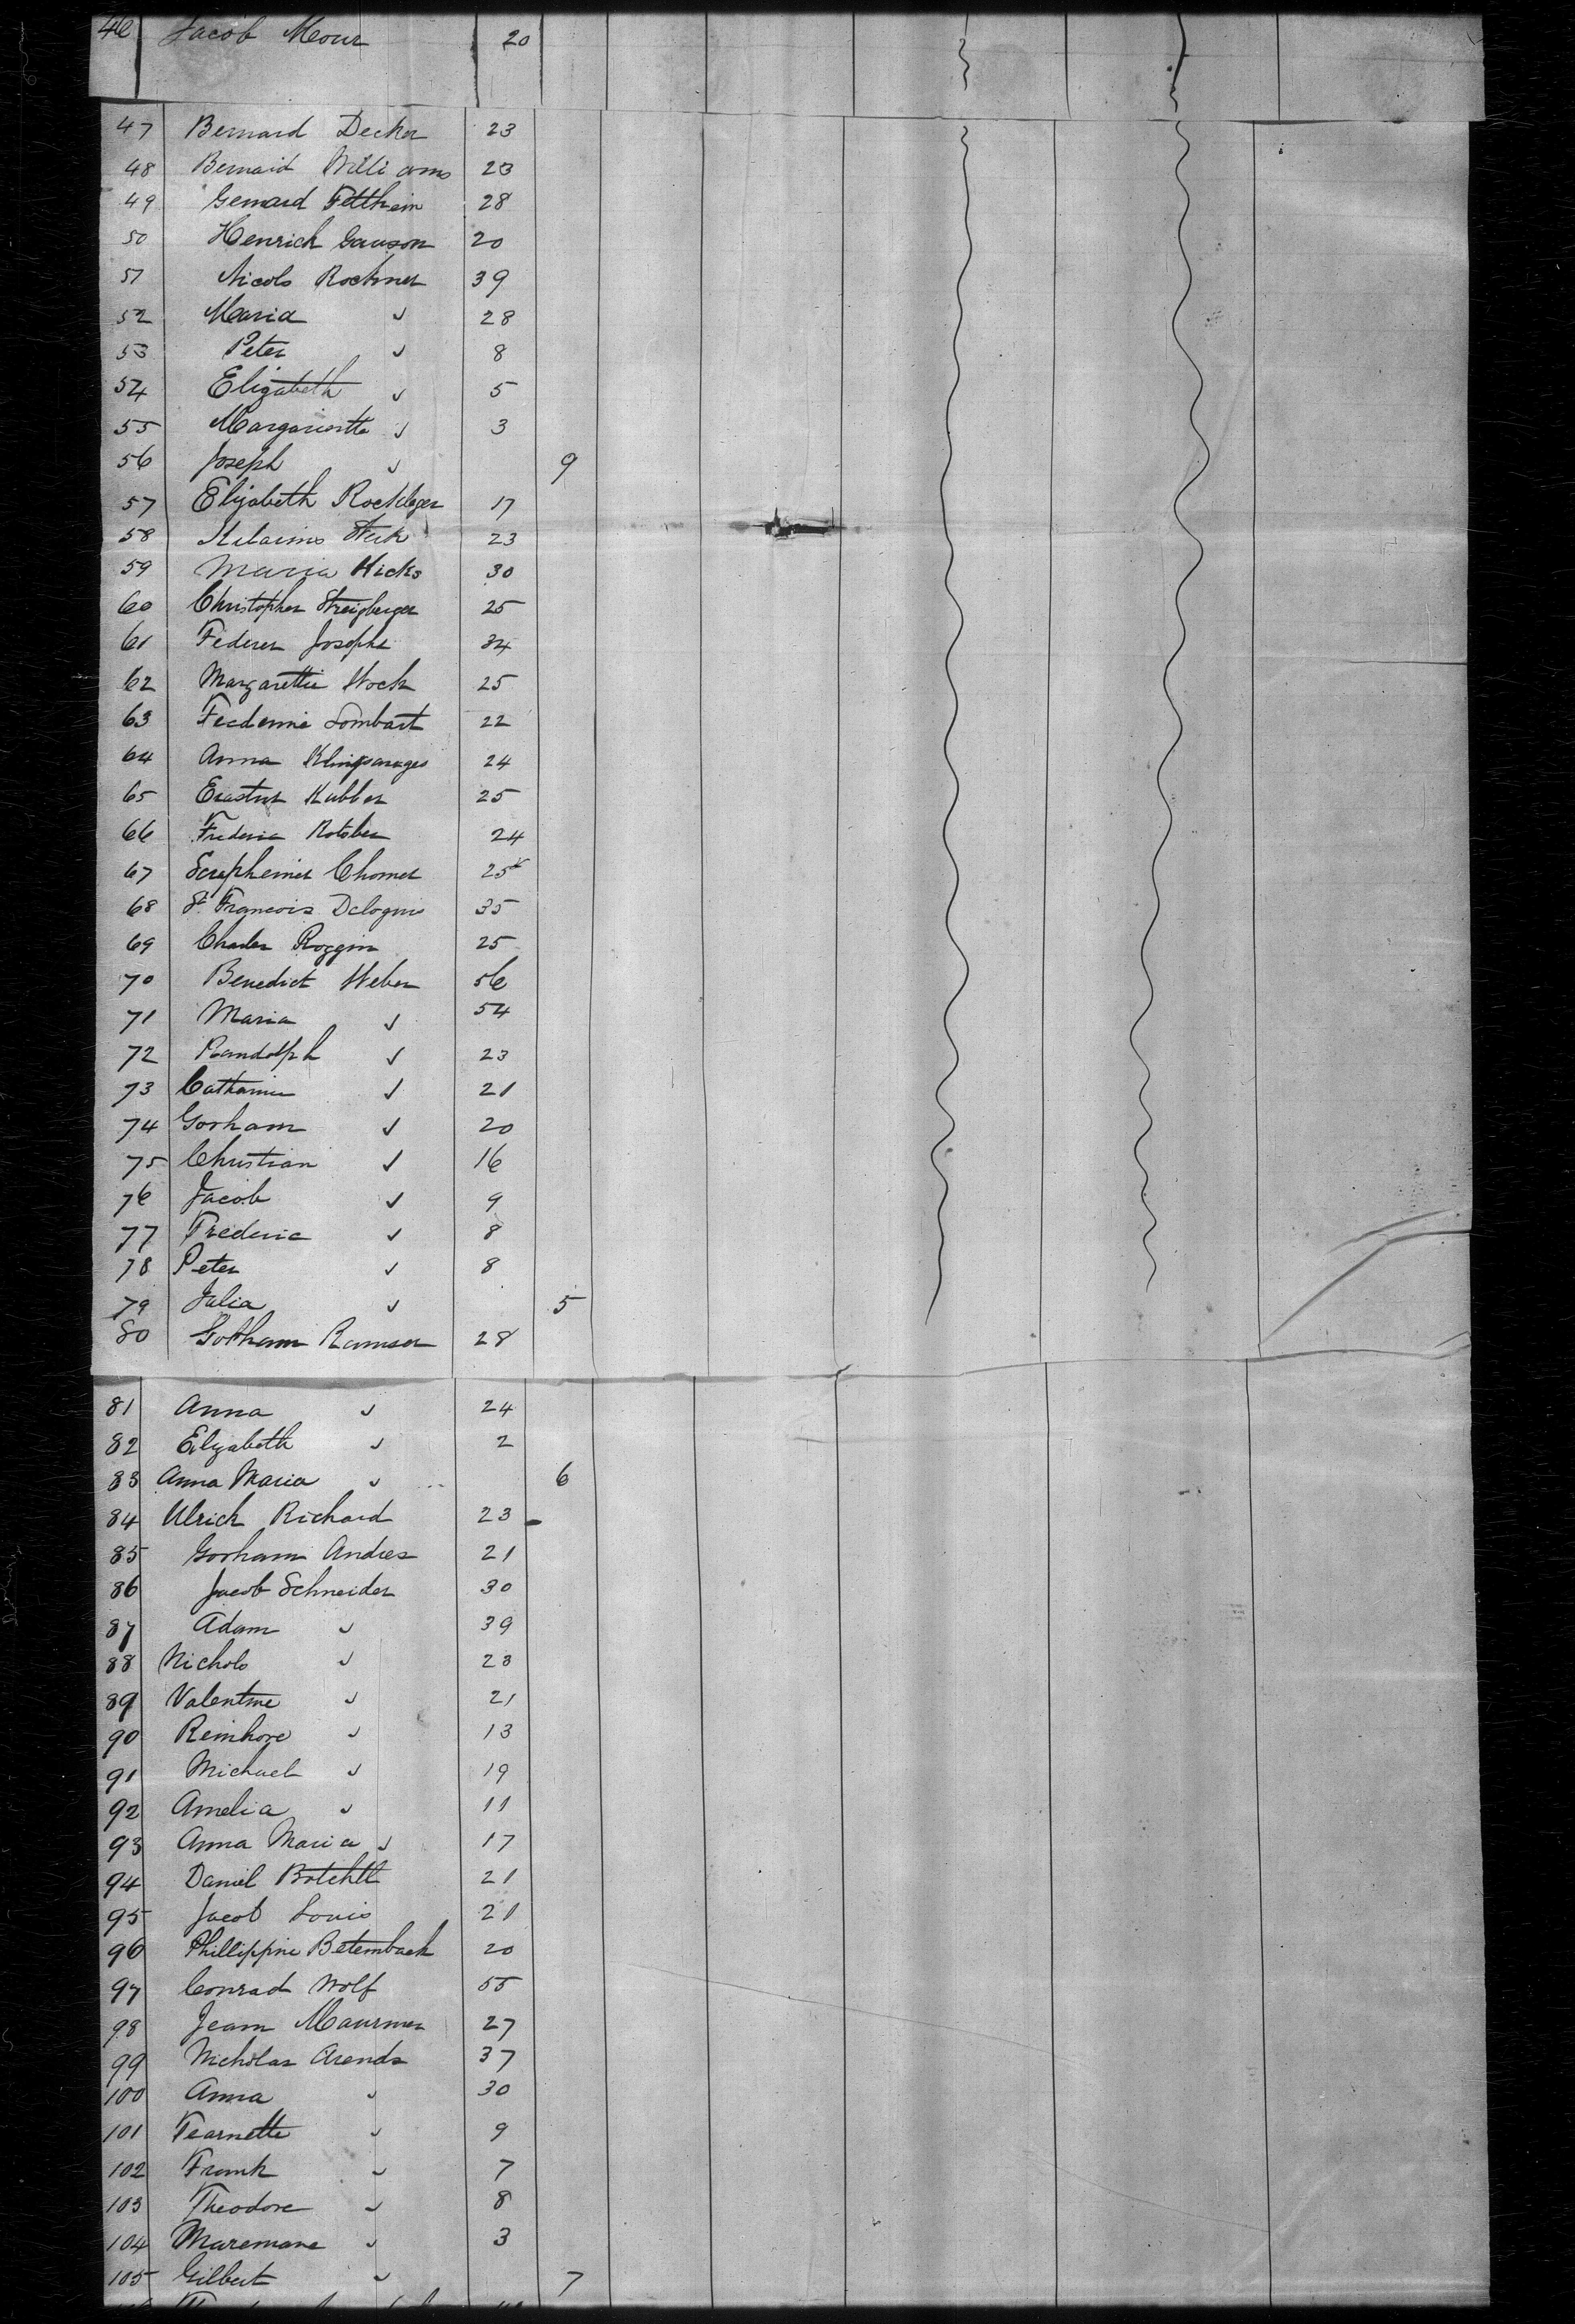 46 Jacob Mour 20
47 Bernard Decker 23
48 Bernard Williams 23
49 Gernard Feltheim 28
50 Henrich Gauson 20
51 Nicols Rochner 39
52 Maria " 28
53 Peter " 8
54 Elizabeth " 5
55 Margarietta " 3
56 Joseph " 9
57 Elizabeth 17
58 23
59 Maria Hicks 30
60 Christopher Streigberger 25
61 Federer Josephe 34
62 Margarettie Stock 25
63 Lombart 22
64 Anna 24
65 Kubber 25
66 Frederic 24
67 Chomer 25
68 St. Francois 35
69 Charles Roggin 25
70 Benedict Weber 56
71 Maria " 54
72 Randolph " 23
73 Catharine " 21
74 Gorham " 20
75 Christian " 16
76 Jacob " 9
77 Frederic " 8
78 Peter " 8
79 Julia " 5
80 Gotham Ramser 28
81 Anna " 24
82 Elizabeth " 2
83 Anna Maria " 6
84 Ulrich Richard 23
85 Gorham Andres 21
86 Jacob Schneider 30
87 Adam " 39
88 Nichols " 23
89 Valentine " 21
90 Reinhore " 13
91 Michael " 19
92 Amelia " 11
93 Anna Maria " 17
94 Daniel 21
95 Jacob Louis 21
96 Phillippine Betemback 20
97 Conrad Wolf 55
98 Jeam Maurmer 27
99 Nicholas Arends 37
100 Anna " 30
101 Tearnette " 9
102 Frank " 7
103 Theodore " 8
104 Maremane " 3
105 Gilbert " 7